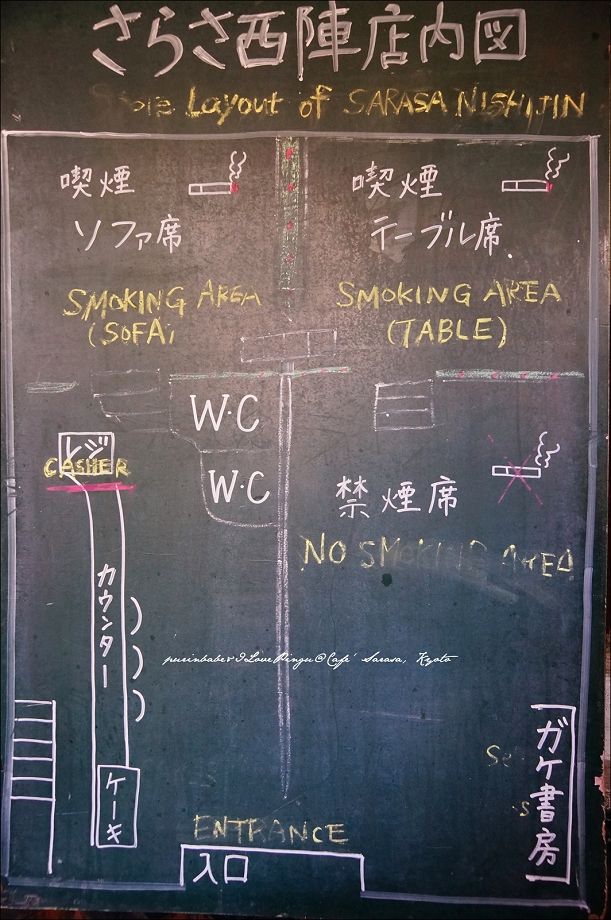 さらさ西陣店内図
Store Layout of SARASA NISHIJIN
喫煙
ソファ席
SMOKING AREA
(SOFA)
喫煙
テーブル席
SMOKING AREA
(TABLE)
W・C
W・C
レジ
CASHER
禁煙席
NO SMOKING AREA
カウンター
purinbabe & I Love Pingu @ Café Sarasa, Kyoto
ケーキ
ガケ書房
ENTRANCE
入口